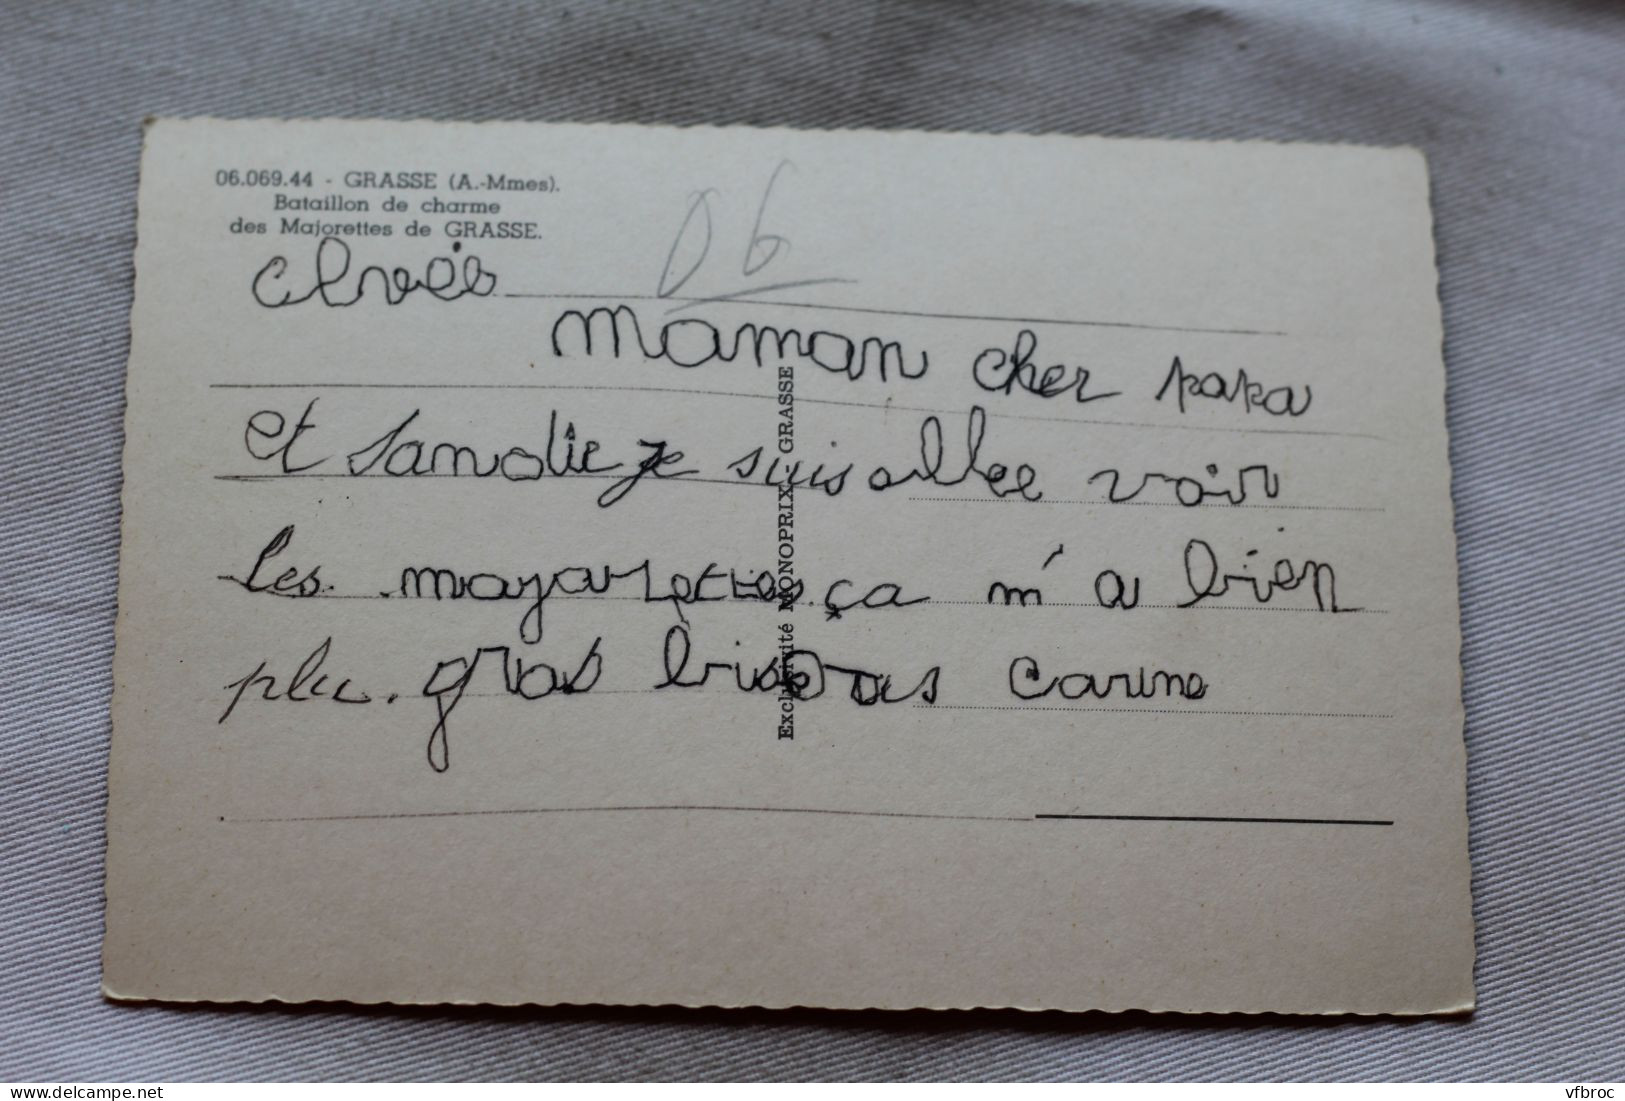 06.069.44 - GRASSE (A.-Mmes).
Bataillon de charme
des Majorettes de GRASSE.
06
Maman cher papa
et Sandie je suis allee voir
les majarettes ça m'a bien
plu. gros bisous carine
Exclusivité MONOPRIX - GRASSE
delcampe.net
vfbroc